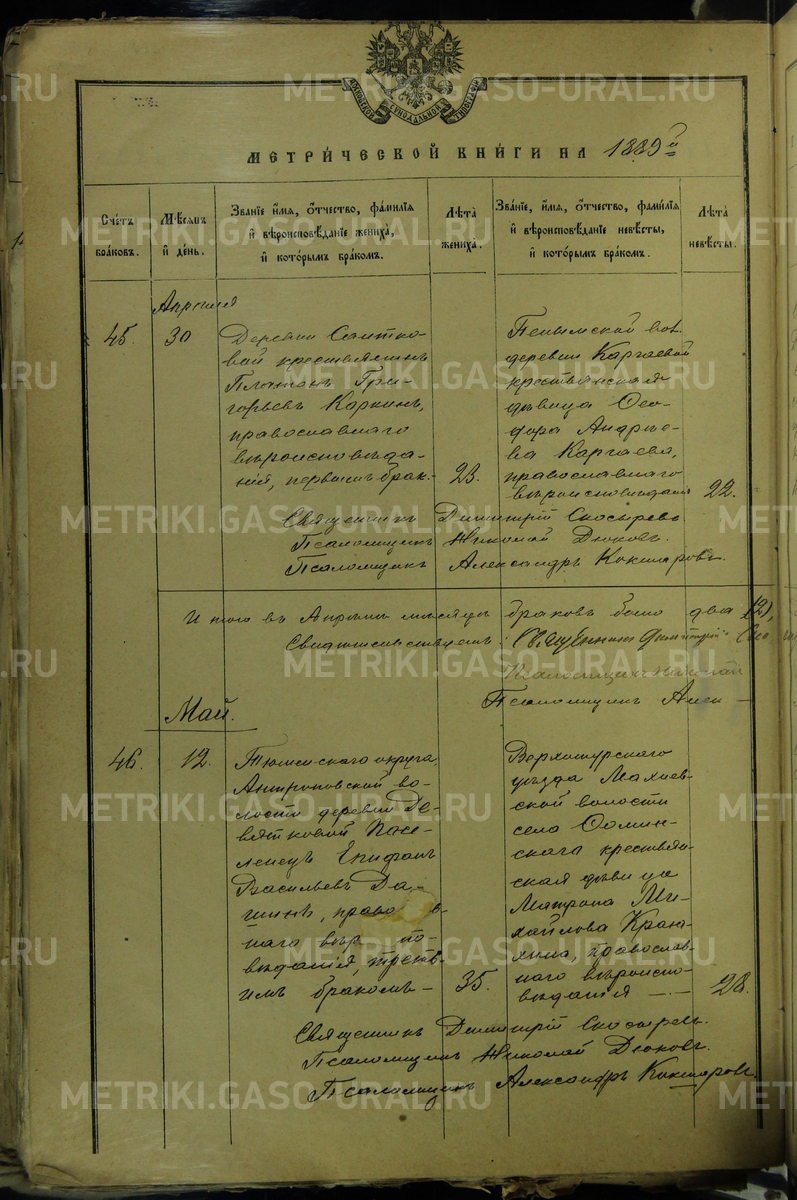 МЕТРИ́ЧЕСКОЙ КНИ́ГИ НА 1889 й
Сче́тъ бра́ковъ.
Мѣ́сяцъ и де́нь.
Зва́нїе и́мя, ѻ҆́тчество, фами́лїя и҆ вѣроисповѣ́данїе жениха́, и҆ кото́рымъ бра́комъ.
Лѣ́та жениха́.
Зва́нїе, и́мя, ѻ҆́тчество, фами́лїя и҆ вѣроисповѣ́данїе невѣ́сты, и҆ кото́рымъ бра́комъ.
Лѣ́та невѣ́сты.
Апрѣля
45.
30
Деревни Саитко-
вой крестьянинъ
Платонъ Гри-
горьевъ Каркинъ,
православнаго
вѣроисповѣда-
нія, первымъ брак.
23.
деревни Каргаевой
крестьянская
дѣвица Ѳео-
дора Андрее-
ва Каргаева,
православнаго
вѣроисповѣданія
22.
Священникъ Димитрій Скосыревъ.
Псаломщикъ Николай Дюковъ.
Псаломщикъ Александръ Кокшаровъ.
Итого въ Апрѣлѣ мѣсяцѣ браковъ было два (2),
Свидѣтельствуемъ: Священникъ Димитрій
Псаломщикъ Николай
Псаломщикъ Алек
Май.
46.
12.
Тюменскаго округа,
Антроповской во-
лости деревни Де-
вятковой посе-
ленецъ Епифанъ
Васильевъ Да-
шинъ, право в-
наго вѣр по-
вѣданія, треть-
имъ бракомъ –
35.
Верхотурскаго
уѣзда Махнев-
ской волости
села Ѳомин-
скаго крестьян-
ская дѣвица
Матрона Ми-
хайлова
православ-
наго вѣроиспо-
вѣданія —
28.
Священникъ Димитрій Скосыревъ.
Псаломщикъ Николай Дюковъ.
Псаломщикъ Александръ Кокшаровъ.
METRIKI.GASO-URAL.RU